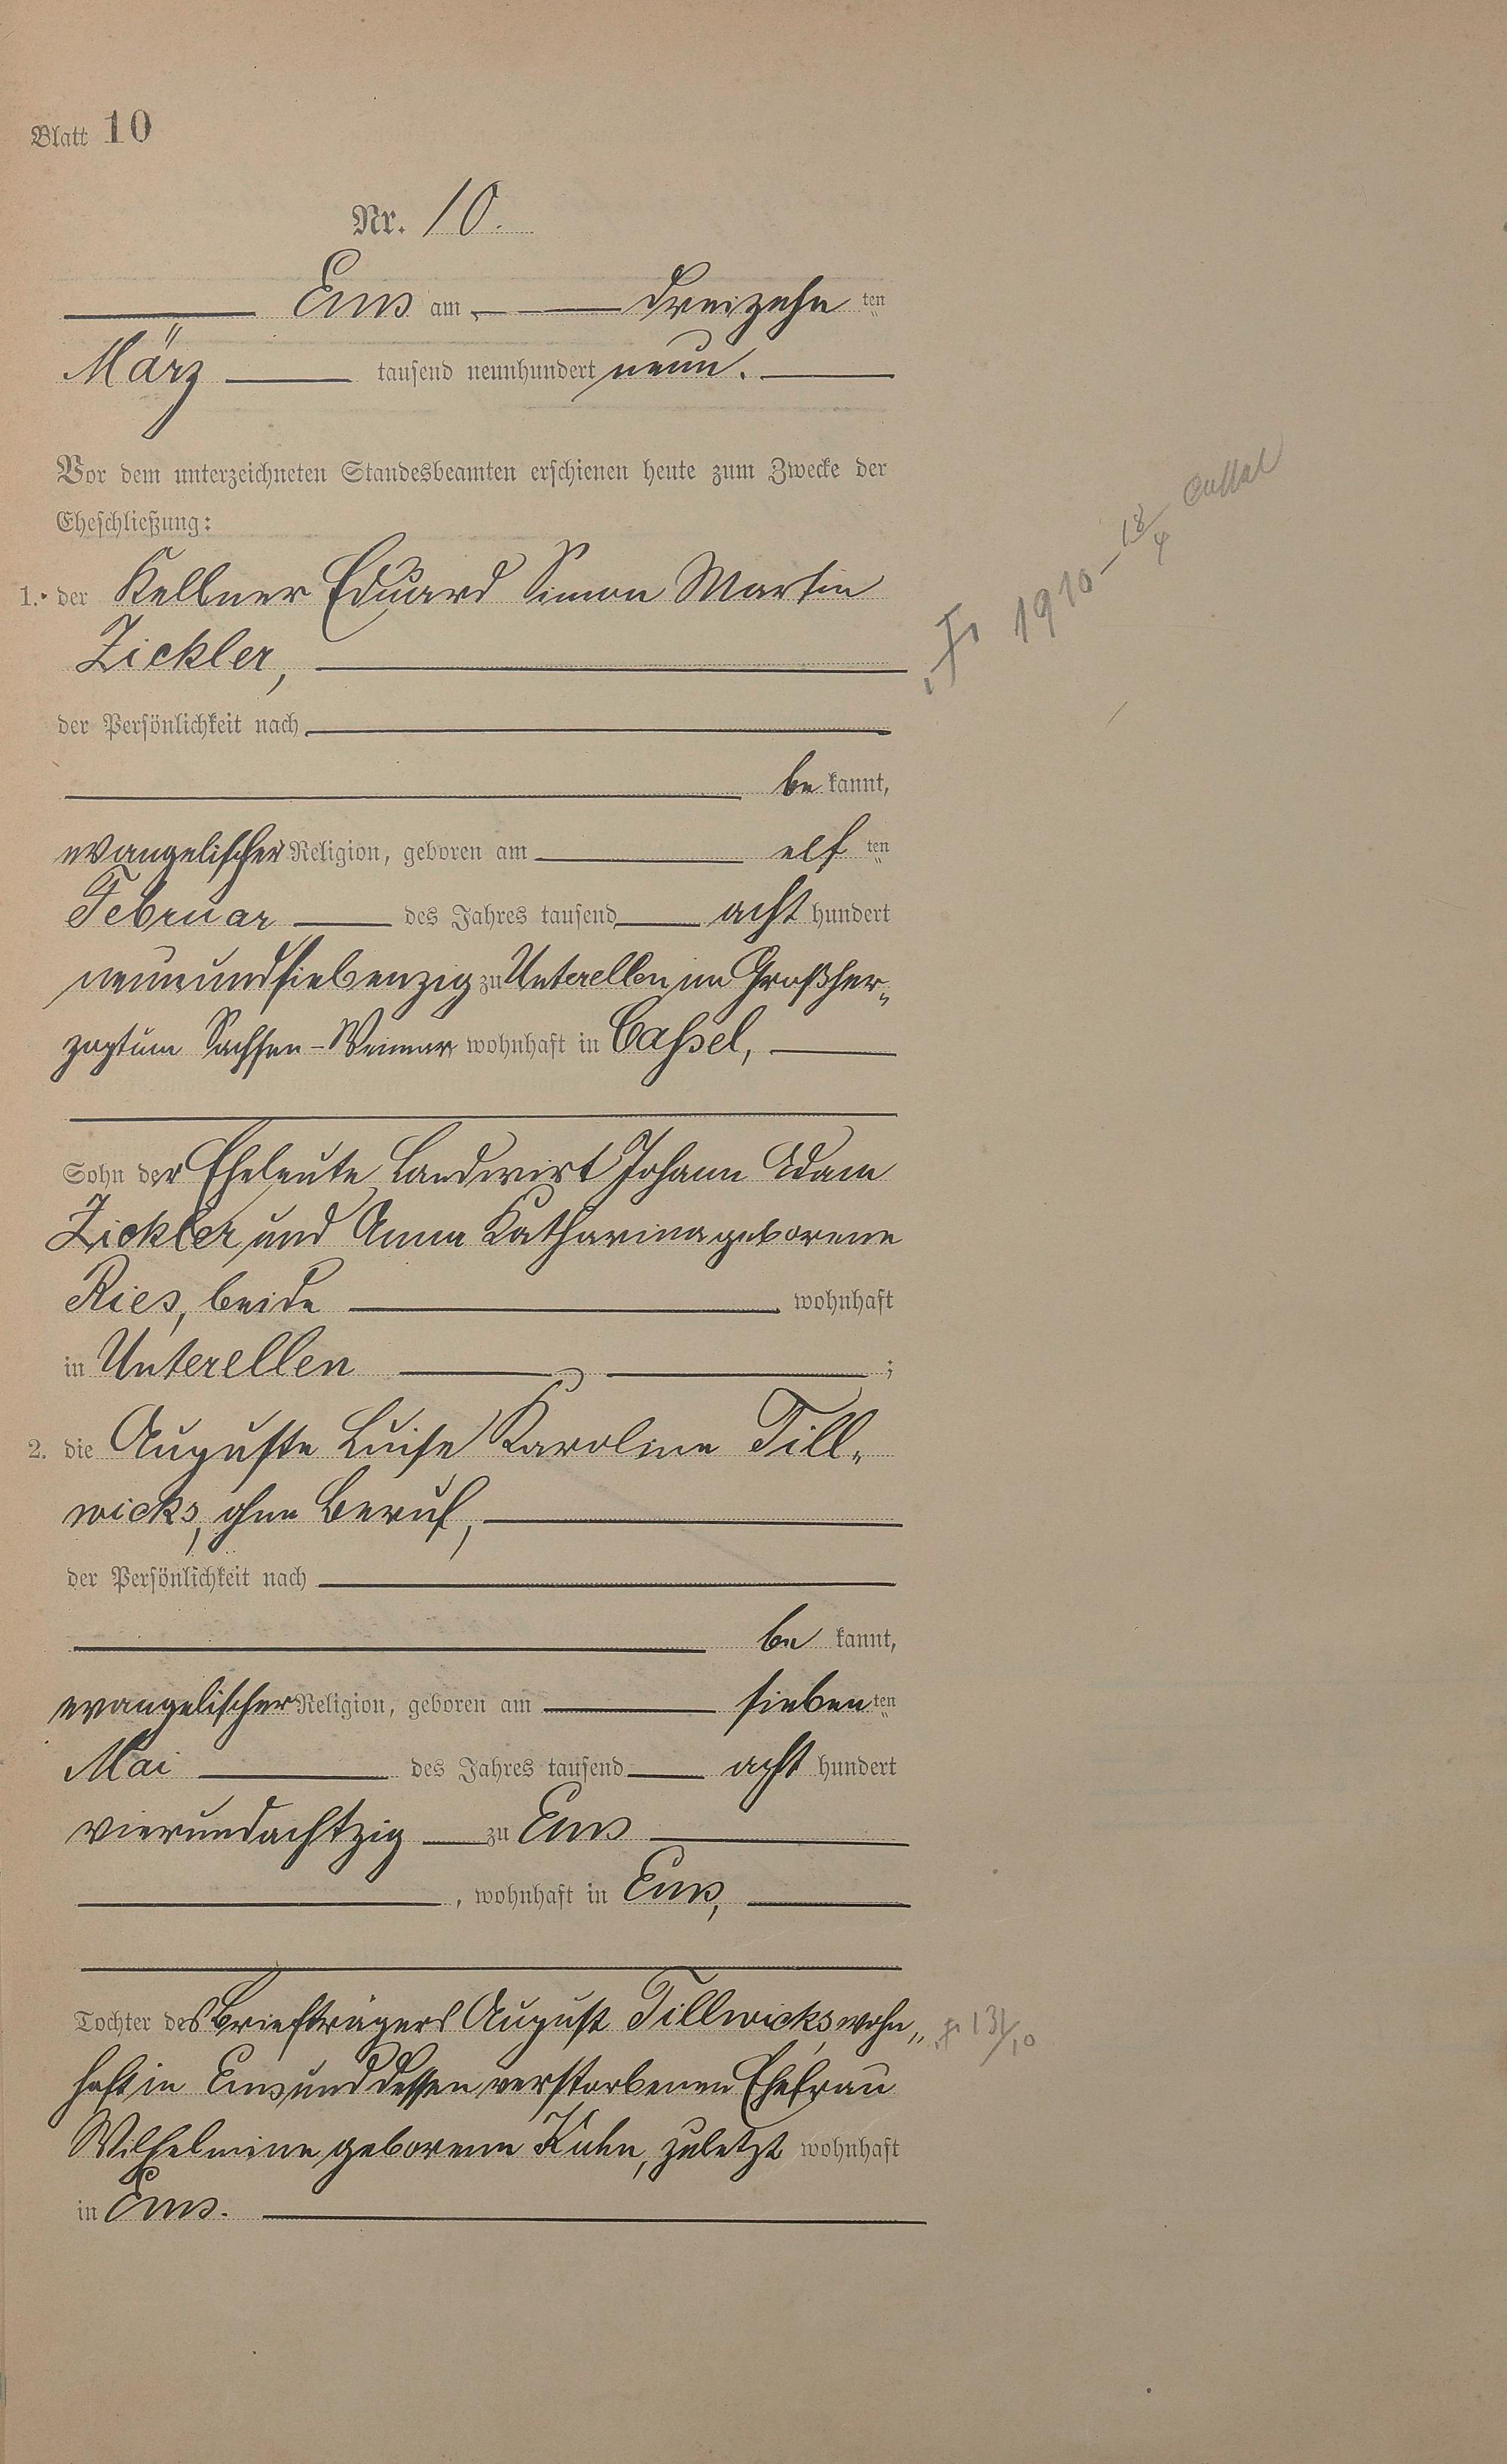 Blatt 10
Nr. 10.
Ems am dreizehn ten
März tausend neunhundert neun.
Vor dem unterzeichneten Standesbeamten erschienen heute zum Zwecke der
Eheschließung:
1. der Kellner Eduard Simon Martin
Zickler,
der Persönlichkeit nach
be kannt,
evangelischer Religion, geboren am elf ten
Februar des Jahres tausend acht hundert
neunundsiebenzig zu Unterellen im Großher„
zogtum Sachsen-Weimar wohnhaft in Cassel,
Sohn der Eheleute Landwirt Johann Adam
Zickler und Anna Katharina geborene
Ries, beide wohnhaft
in Unterellen ;
2. die Auguste Luise Karoline Till„
wicks, ohne Beruf,
der Persönlichkeit nach
be kannt,
evangelischer Religion, geboren am sieben ten
Mai des Jahres tausend acht hundert
vierundachtzig zu Ems
, wohnhaft in Ems,
Tochter des Briefträgers August Tillwicks, wohn„
haft in Ems und dessen verstorbenen Ehefrau
Wilhelmine geborene Kuhn, zuletzt wohnhaft
in Ems.
1910 - 18/4 Cassel
13/10